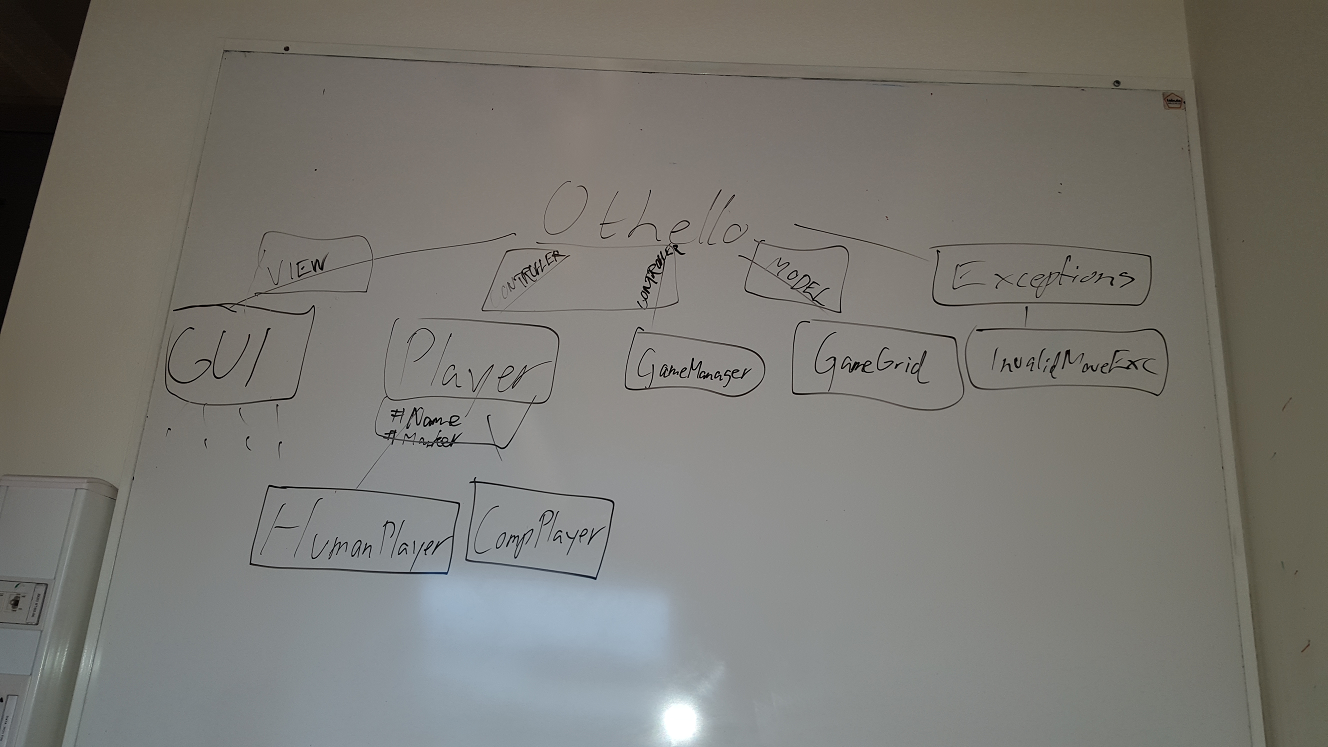 Othello
VIEW
CONTROLLER
CONTROLLER
MODEL
Exceptions
GUI
Player
GameManager
GameGrid
InvalidMoveExc
#Name
#Marker
HumanPlayer
CompPlayer